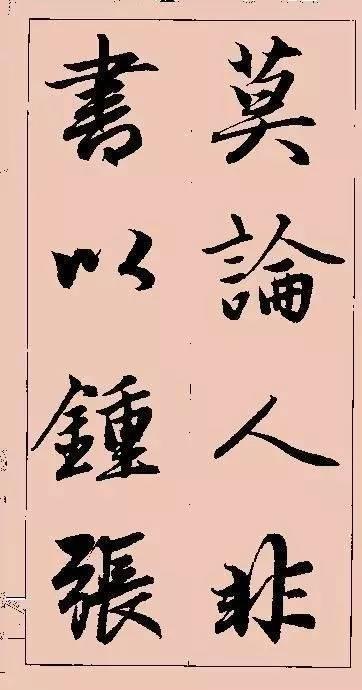 莫論人非
書以鍾張